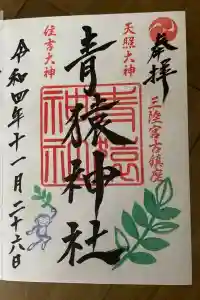 奉拝
三陸宮古鎮座
天照大神
青猿神社
住吉大神
令和四年十一月二十六日
青猿
神社